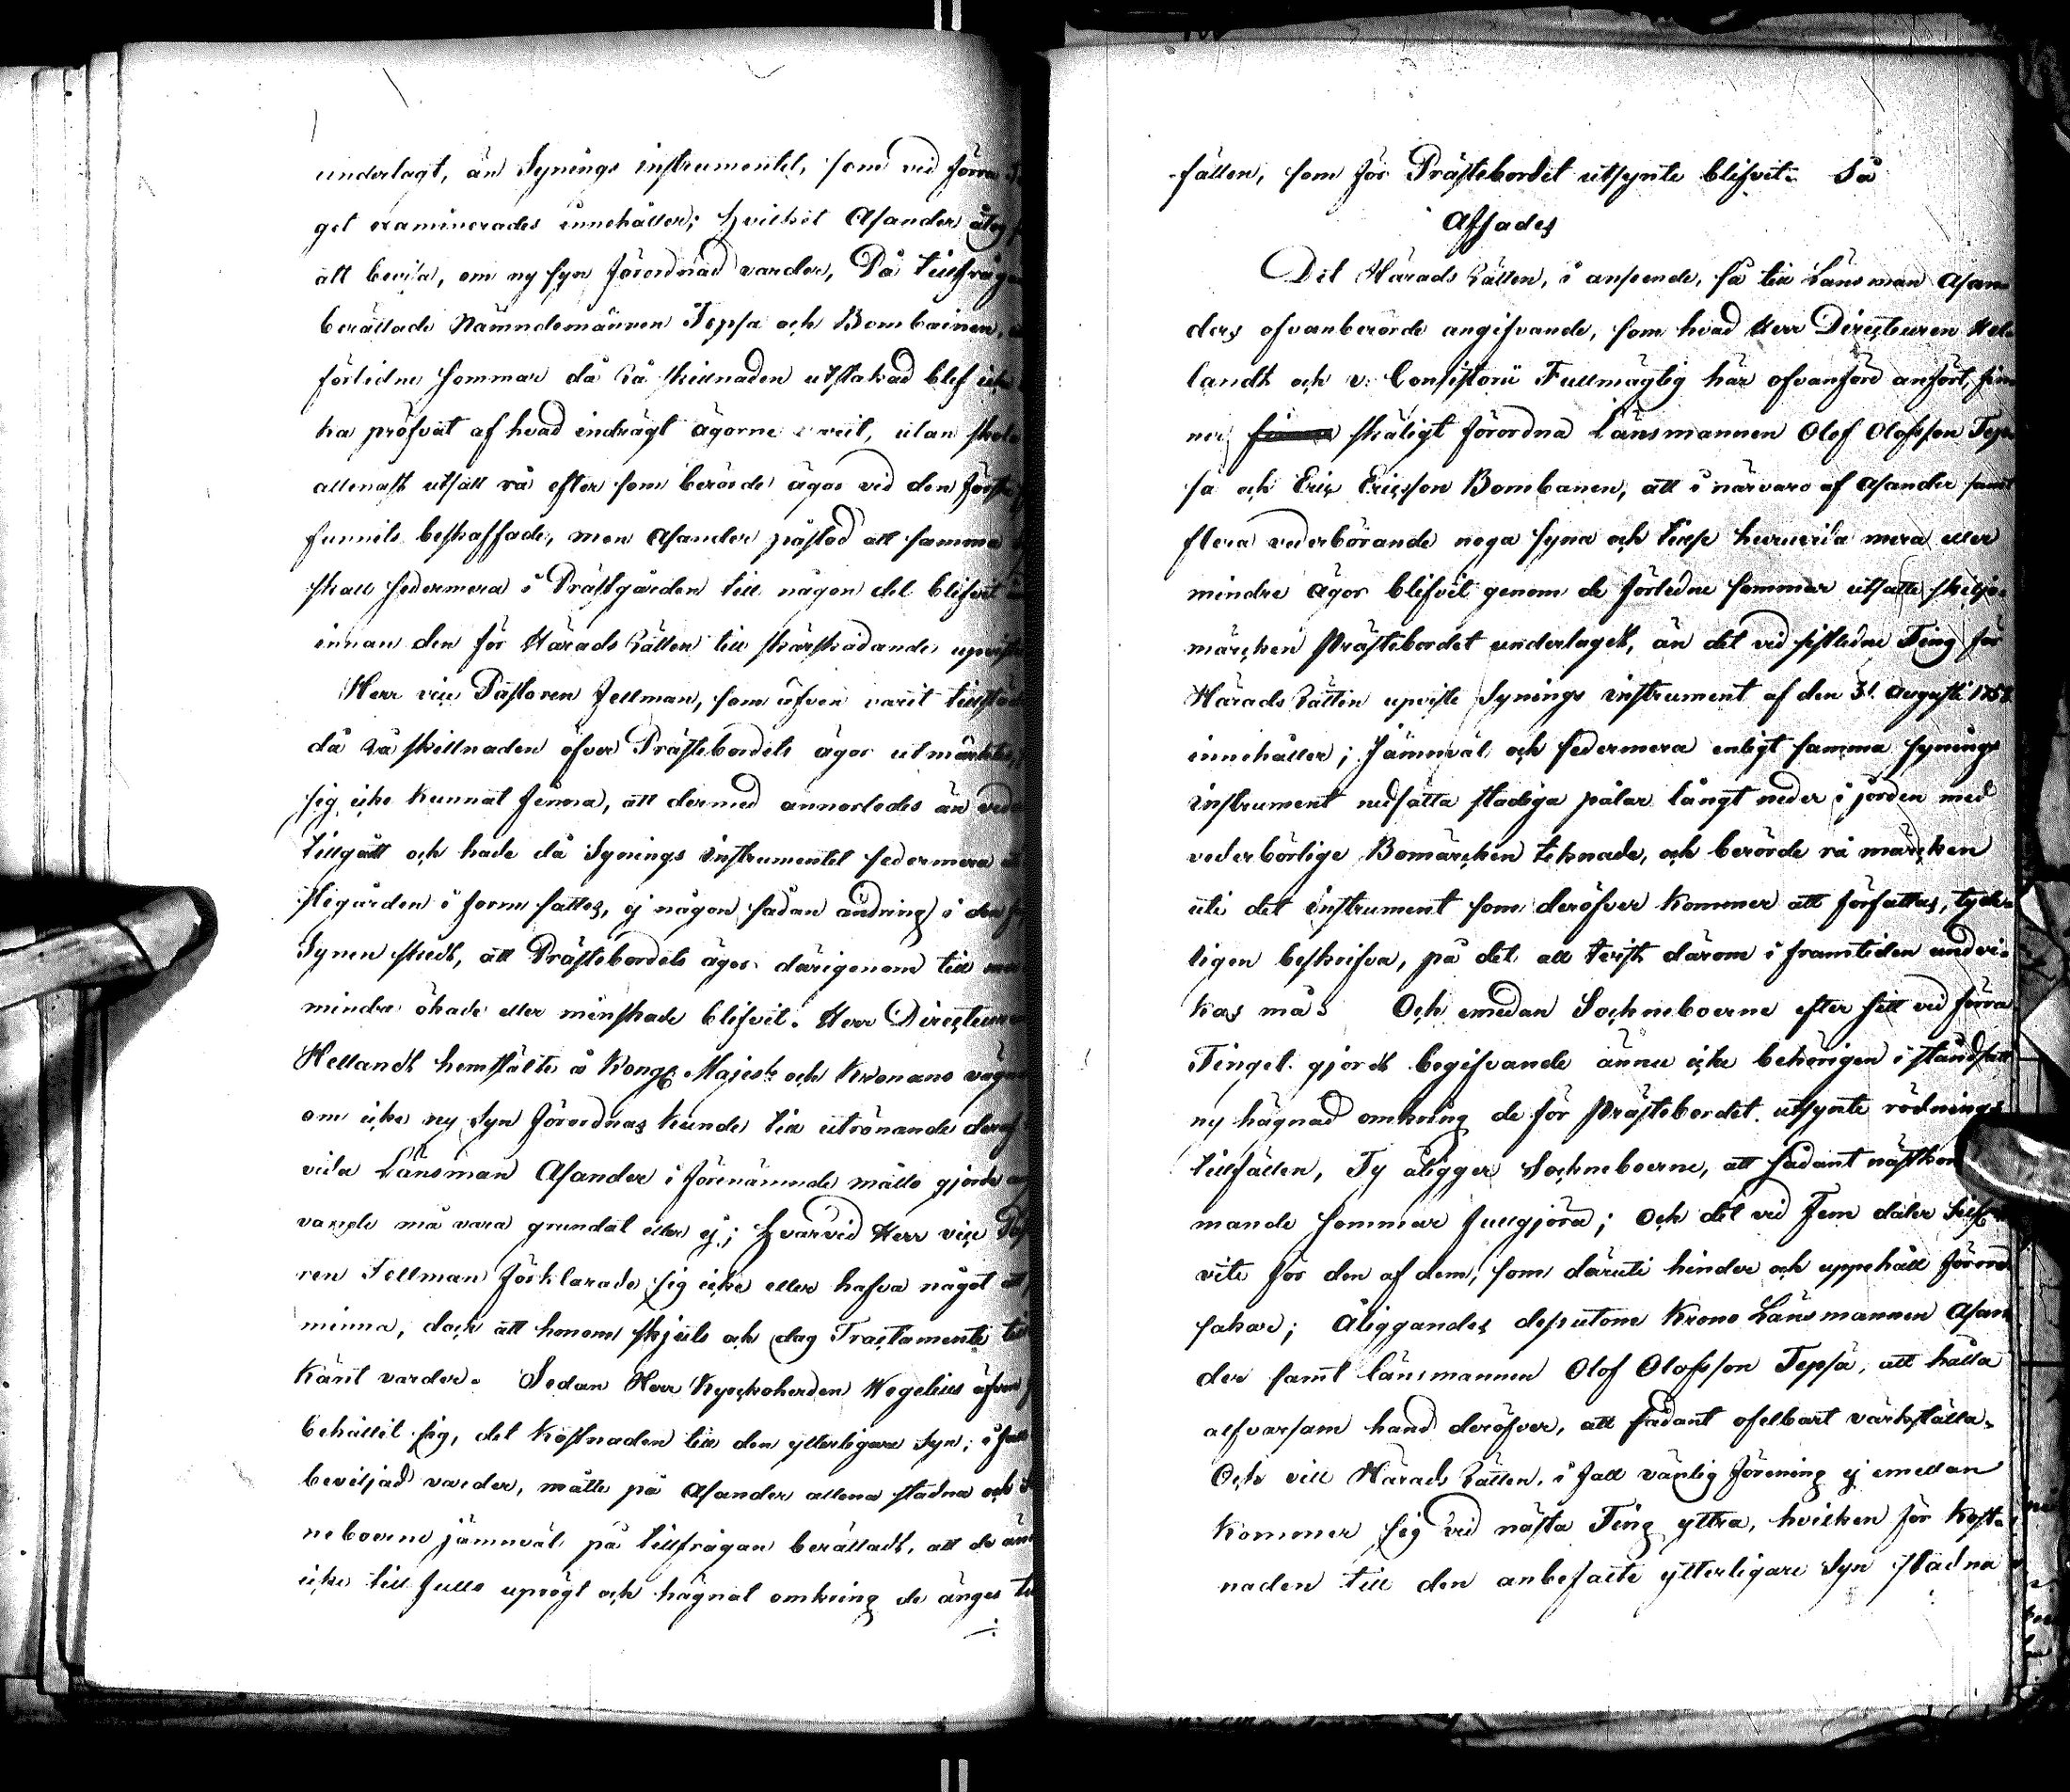 underlagt, än Synings instrumentet, som vid förra
get examinerades innehåller; hvilket Asander åtog
att bevisa, om ny syn förordnad varder, På tillfrågan
berättade Nämndemännen Tepsa och Bombainen,
förledne sommar då Rå skillnaden utstakad blef icke
ha pröfvat af hvad indrägt ägorne varit, utan
allenast utsatt rå efter som berörde ägor vid den
funnits beskaffade, men Asander påstod att samma
skall sedermera i Prästgården till någon del blifvit
innan den för Härads Rätten till skärskådande
Herr vice Pastoren Fellman, som äfven varit
då Rå skillnaden öfver Prästebordets ägor utmärktes,
sig icke kunnat finna, att dermed annorledes än
tillgått och hade då Synings instrumentet sedermera
stegården i form sattes, ej någon sådan ändring i den
Synen skedt, att Prästebordets ägor därigenom till
mindre ökade eller minskade blifvit. Herr Directeuren
Hellandt hemstälte å Kongl. Majest: och Kronans vägnar
om icke ny Syn förordnas kunde till utrönande deraf
vida Länsman Asander i förenämnde måtto gjorde
vande må vara grundat eller ej; hvarvid Herr vice
ren Fellman förklarade sig icke eller hafva något
minna, dock att honom skjuts och dag Tractamente
känt varder. Sedan Herr Kyrckoherden Wegelius äfven
behållit sig, det kostnaden till den ytterligare Syn, i fall
beviljad varder, måtte på Asander allena stadna och
neboerne jämnväl på tillfrågan berättadt, att de
icke till fullo uprögt och hägnat omkring de änges
-fällen, som för Prästebordet utsynte blifvit. Så
Afsades
Det Härads Rätten, i anseende, så till Länsman Asan-
ders ofvanberörde angifvande, som hvad Herr Directeuren Hel-
landt och v. Consistorii Fullmägtig här ofvanföre anfört, fin-
ner skäligt förordna Länsmannen Olof Olofsson Tep-
sa och Eric Ericsson Bombanen, att i närvaro af Asander samt
flera vederbörande noga syna och tillse huruvida mera eller
mindre ägor blifvit genom de förledne sommar utsatte skiljo-
märcken Prästebordet underlagdt, än det vid sistledne Ting för
Härads Rätten upviste Synings instrument af den 31. Augusti 1758
innehåller; Jämnväl och sedermera enligt samma synings
instrument nedsätta stadiga pålar långt neder i jorden med
vederbörlige Bomärcken teknade, och berörde rå märcken
uti det instrument som deröfver kommer att författas, tyde-
ligen beskrifva, på det all tvist därom i framtiden undvi-
kas må. Och emedan Sockneboerne efter sitt vid förra
Tinget gjordt begifvande ännu icke behörigen i ståndsatt
ny hägnad omkring de för Prästebordet utsynte rödnings
tillfällen, Ty åligger Sockneboerne, att sådant nästkom
mande sommar fullgjöra; och det vid Fem daler Silf:
vite för den af dem, som däruti hinder och uppehåll föror-
sakar; Åliggandes desutom Krono Länsmannen Asan
der samt länsmannen Olof Olofsson Tepsa, att hålla
alfvarsam hand deröfver, att sådant ofelbart värkställa.
Och vill Härads Rätten, i fall vänlig förening ej emellan
kommer sig vid nästa Ting yttra, hvilken för kost-
naden till den anbefalte ytterligare Syn stadna